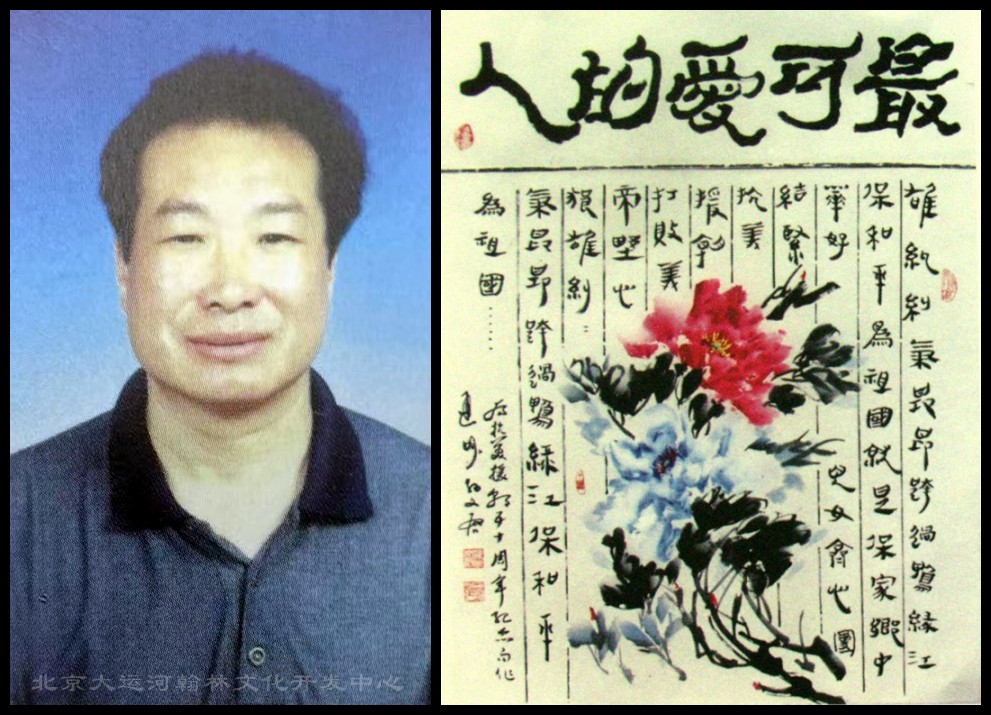 最可愛的人
雄糾糾氣昂昂跨過鴨緑江
保和平為祖國就是保家鄉中
華好児女齊心團
結緊
抗美
援朝
打敗美
帝野心
狼雄糾〻
氣昂昂跨過鴨緑江保和平
為祖國……
抗美援朝五十周年纪念而作
北京大运河翰林文化开发中心